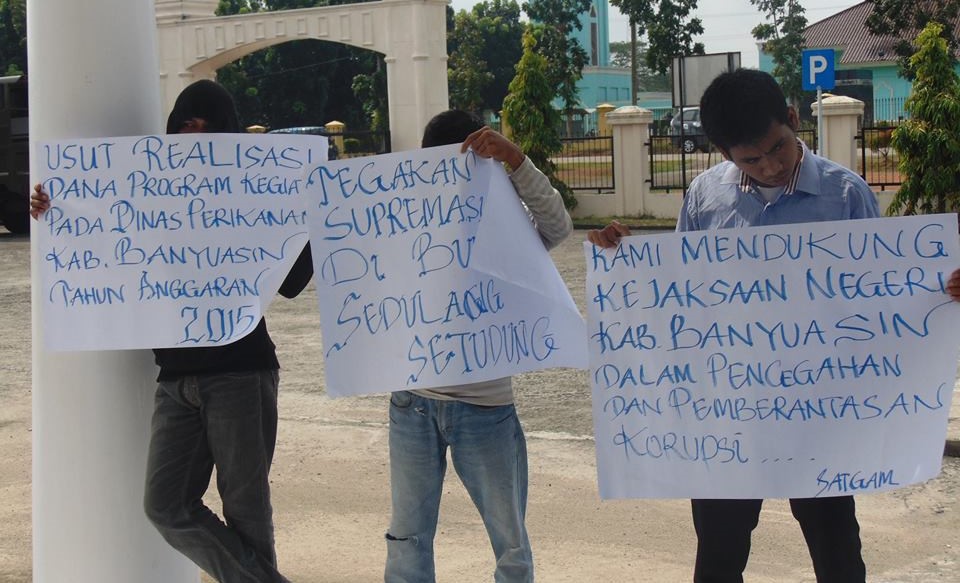 USUT REALISASI
DANA PROGRAM KEGIA
PADA DINAS PERIKANAN
KAB. BANYUASIN
TAHUN ANGGARAN
2015
TEGAKAN
SUPREMASI
DI BU
SEDULANG
SETUDUNG
P
KAMI MENDUKUNG
KEJAKSAAN NEGERI
KAB. BANYUASIN
DALAM PENCEGAHAN
DAN PEMBERANTASAN
KORUPSI .....
SATGAM